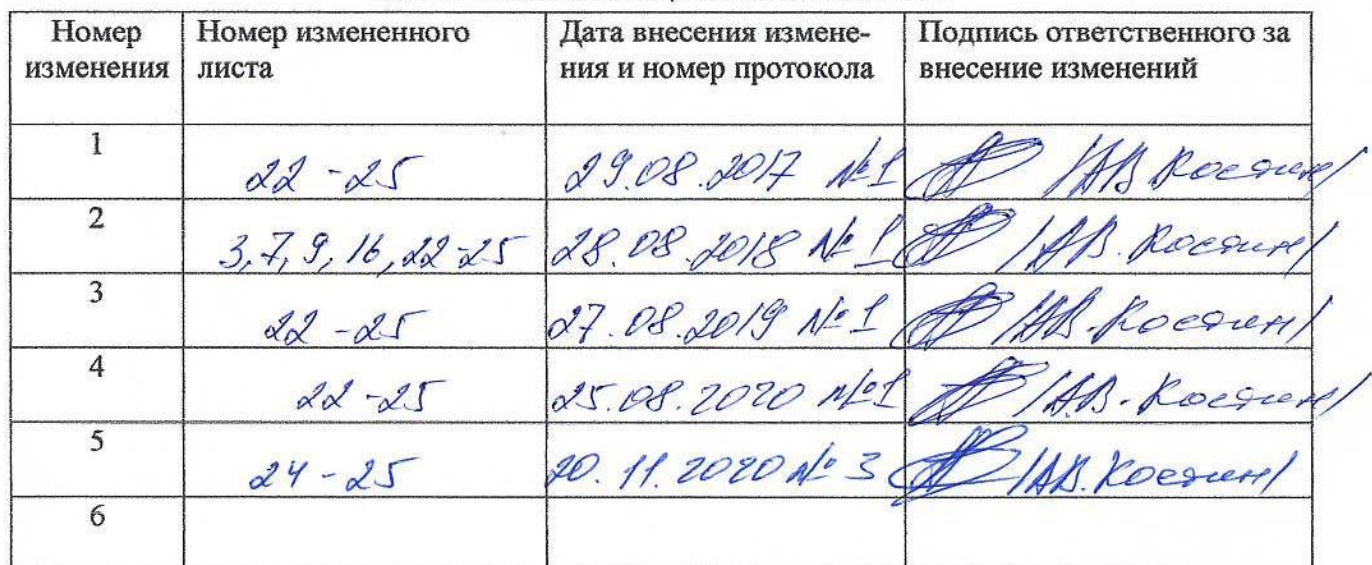 Номер
изменения
Номер измененного
листа
Дата внесения измене-
ния и номер протокола
Подпись ответственного за
внесение изменений
1 22-25 29.08.2017 №1 /А.В. Костин/
2 3, 7, 9, 16, 22-25 28.08.2018 №1 /А.В. Костин/
3 22-25 27.08.2019 №1 /А.В. Костин/
4 22-25 25.08.2020 №1 /А.В. Костин/
5 24-25 20.11.2020 № 3 /А.В. Костин/
6